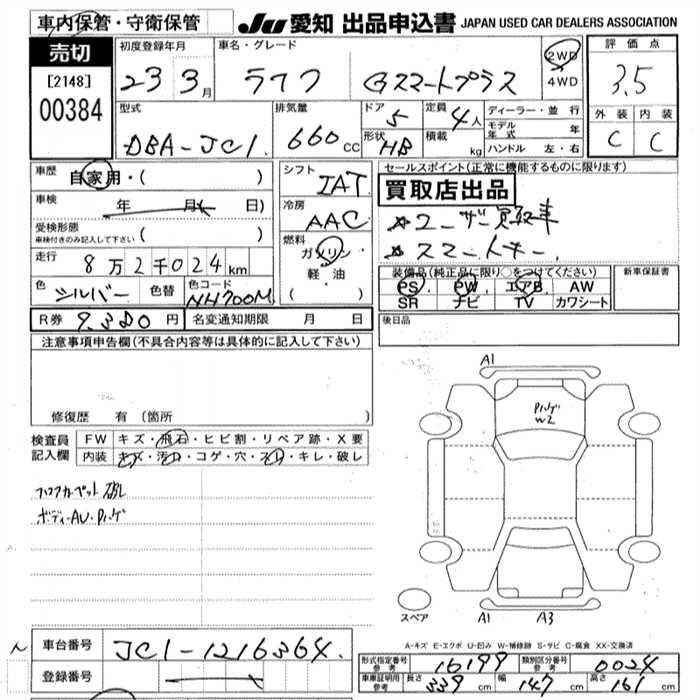 車内保管・守衛保管
JU 愛知 出品申込書 JAPAN USED CAR DEALERS ASSOCIATION
売切
[2148]
00384
初度登録年月
23 3月
車名・グレード
ライフ Gスマートプラス
2WD
4WD
評価点
3.5
外装 内装
C C
型式
DBA-JC1
排気量
660cc
ドア 5
形状 HB
定員 4人
積載 kg
ディーラー・並行
モデル年式 年
ハンドル 左・右
車歴 自家用・( )
車検 年 月( 日)
受検形態
車検付きのみ記入して下さい ( )
走行 8万2千024km
色 シルバー 色替 色コード NH700M
シフト IAT
冷房 AAC
燃料
ガソリン
軽油
・( )
セールスポイント(正常に機能するものに限ります)
買取店出品
☆ユーザー買取車
☆スマートキー
装備品(純正品に限り○をつけてください)
PS PW エアB AW
SR ナビ TV カワシート
新車保証書
後日品
R券 9,380円 名変通知期限 月 日
注意事項申告欄(不具合内容等は具体的に記入して下さい)
修復歴 有 (箇所
検査員
記入欄
FW キズ・飛石・ヒビ割・リペア跡・X要
内装 キズ・汚れ・コゲ・穴・スレ・キレ・破レ
フロアカーペット破レ
ボディーAU・Pハゲ
A1
Pハゲ
W2
スペア
A1 A3
A-キズ E-エクボ U-凹み W-補修跡 S-サビ C-腐食 XX-交換済
車台番号 JC1-1216364
登録番号
型式指定番号
参考
16199
類別区分番号
参考
0024
車庫証明用
参考
長さ 339cm 幅 147cm 高さ 161cm